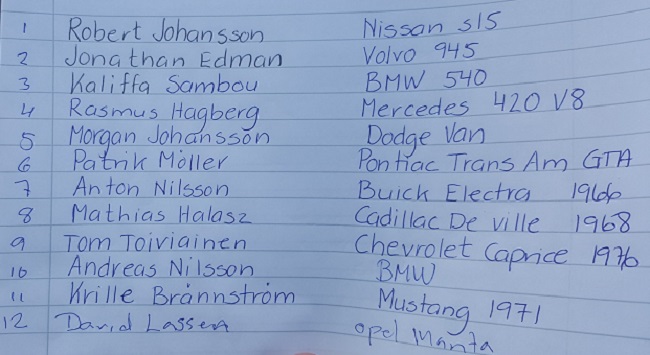 1 Robert Johansson Nissan S15
2 Jonathan Edman Volvo 945
3 Kaliffa Sambou BMW 540
4 Rasmus Hagberg Mercedes 420 V8
5 Morgan Johansson Dodge Van
6 Patrik Möller Pontiac Trans Am GTA
7 Anton Nilsson Buick Electra 1966
8 Mathias Halasz Cadillac De ville 1968
9 Tom Toiviainen Chevrolet Caprice 1976
10 Andreas Nilsson BMW
11 Krille Brännström Mustang 1971
12 David Lassen Opel Manta